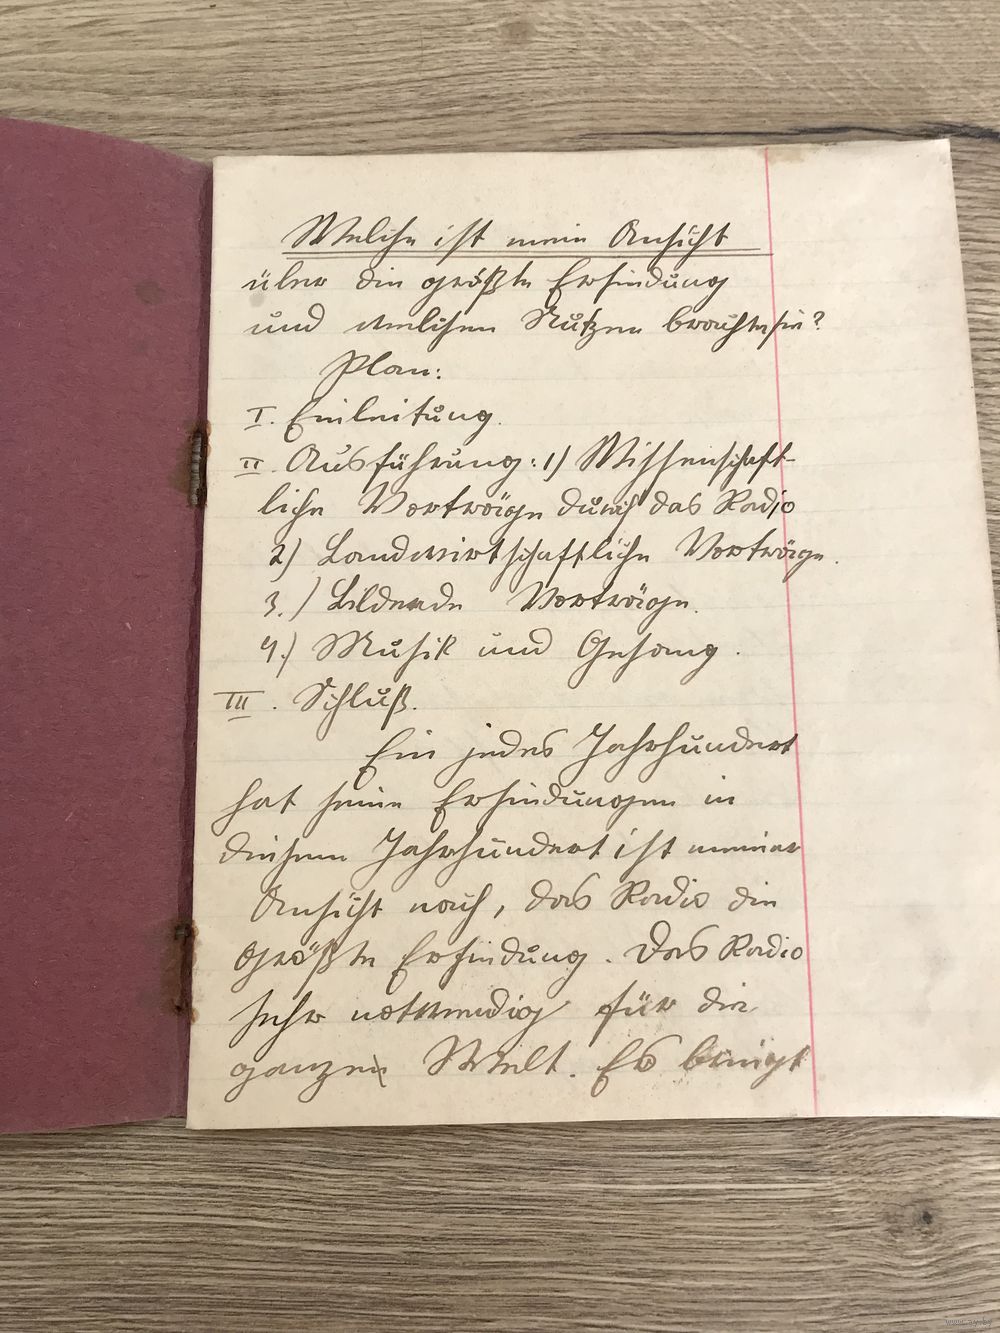 Welche ist mein Ansicht
über die größte Erfindung
und welchen Nutzen brachte sie?
Plan:
I. Einleitung.
II. Ausführung: 1) Wissenschaft-
liche Vorträge durch das Radio
2) Landwirtschaftliche Vorträge.
3.) Bildende Vorträge.
4.) Musik und Gesang.
III. Schluß.
Ein jedes Jahrhundert
hat seine Erfindungen in
diesem Jahrhundert ist meiner
Ansicht nach, das Radio die
größte Erfindung. Das Radio
sehr notwendig für die
ganzen Welt. Es bringt
www.ay.by